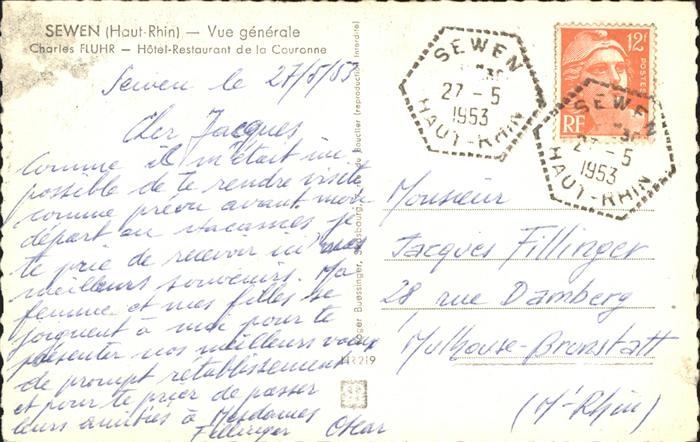 SEWEN (Haut-Rhin) — Vue générale
Charles FLUHR — Hôtel-Restaurant de la Couronne
Sewen le 27/5/53
Cher Jacques
Comme il m'était im-
possible de te rendre visite
comme prévu avant mon
départ en vacances je
te prie de recevoir ici mes
meilleurs souvenirs. Ma
femme et mes filles se
joignent à moi pour te
présenter nos meilleurs voeux
de prompt rétablissement
et pour te prier de passer
leurs amitiés à Mesdames
Fillinger Oscar
Roger Buessinger, Strasbourg, du Bouclier (reproduction interdite)
144219
SEWEN
27-5
1953
HAUT-RHIN
12F
POSTES
RF
SEWEN
27-5
1953
HAUT-RHIN
Monsieur
Jacques Fillinger
28 rue Damberg
Mulhouse-Brunstatt
(Ht Rhin)